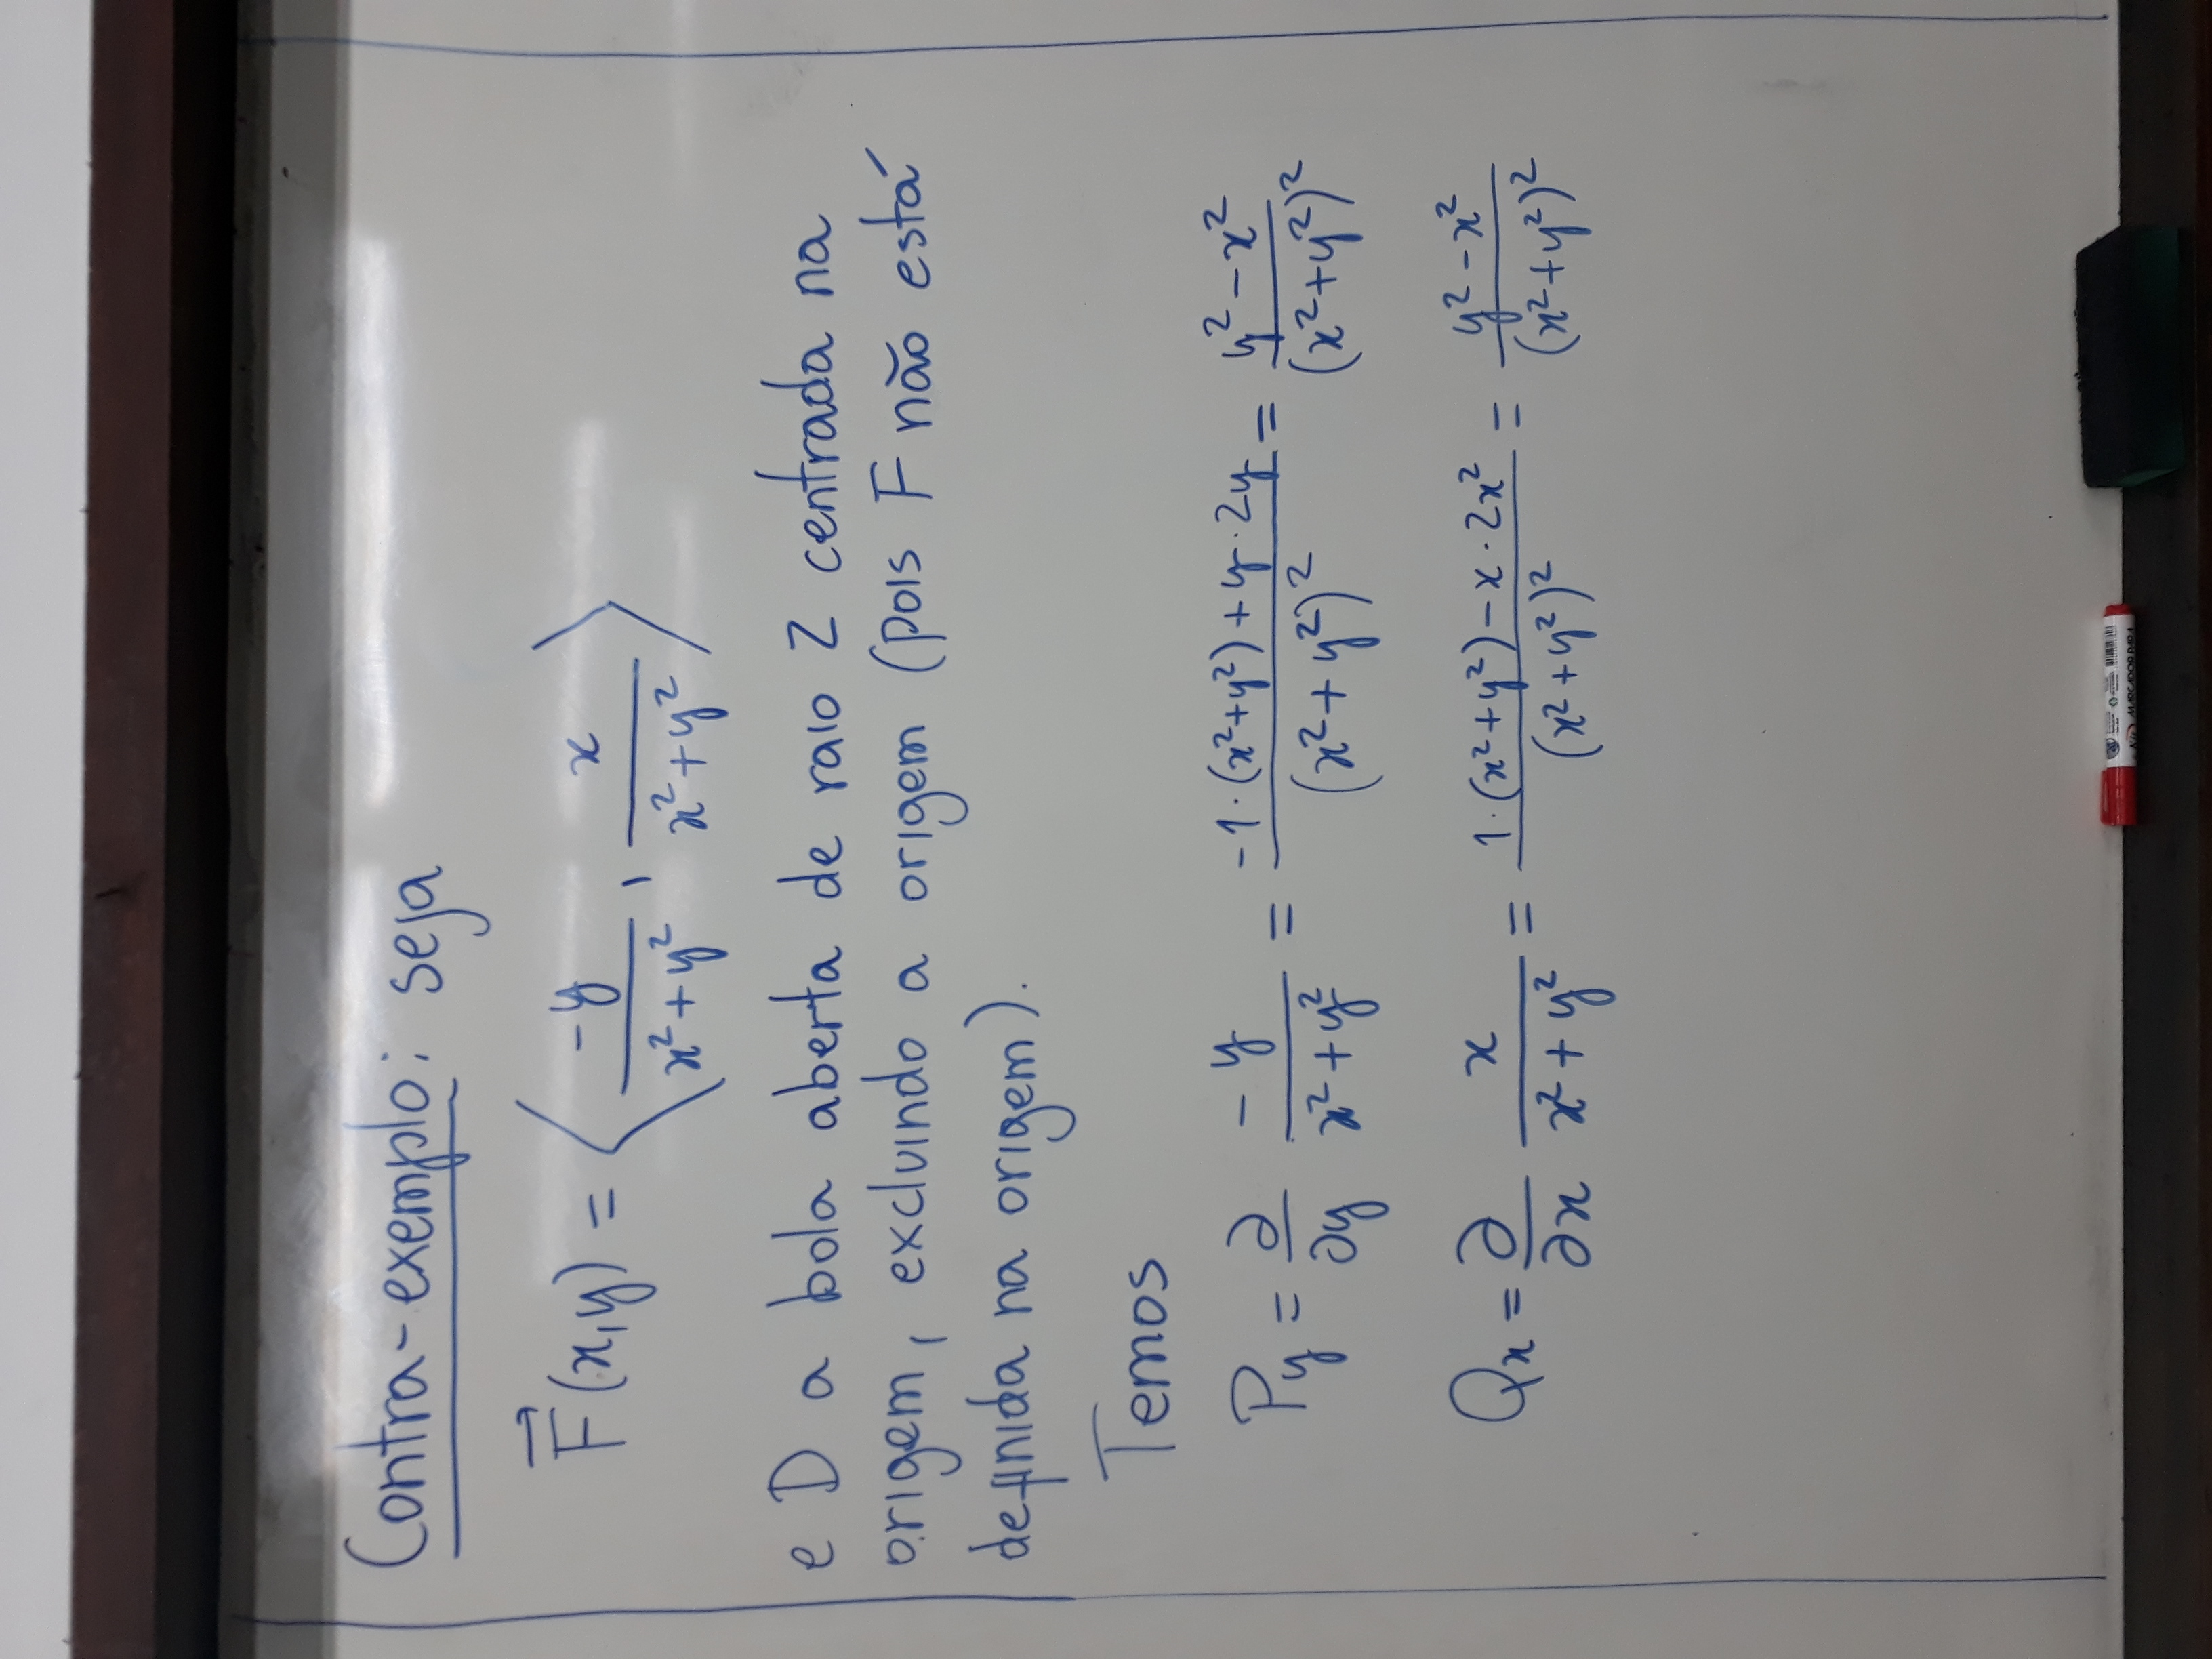 Contra-exemplo: seja
F⃗(x,y) = ⟨ -y/(x²+y²) , x/(x²+y²) ⟩
e D a bola aberta de raio 2 centrada na
origem, excluindo a origem (pois F não está
definida na origem).
Temos
Py = ∂/∂y -y/(x²+y²) = (-1·(x²+y²)+y·2y)/(x²+y²)² = (y²-x²)/(x²+y²)²
Qx = ∂/∂x x/(x²+y²) = (1·(x²+y²)-x·2x²)/(x²+y²)² = (y²-x²)/(x²+y²)²
MARCADOR PARA